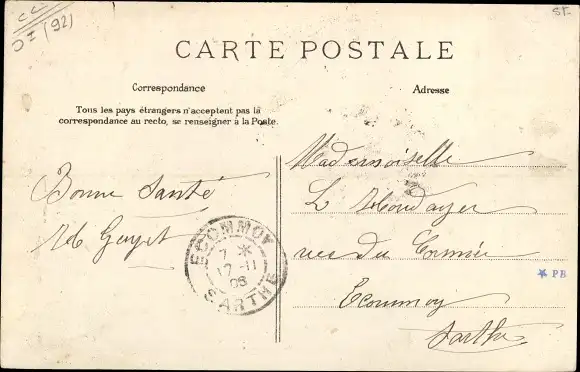 CC
(92)
ST
CARTE POSTALE
Correspondance
Adresse
Tous les pays étrangers n'acceptent pas la
correspondance au recto, se renseigner à la Poste.
Bonne Santé
Mademoiselle
L
rue du
Ecommoy
Sarthe
ECOMMOY
7 *
17 -11
08
SARTHE
* PB